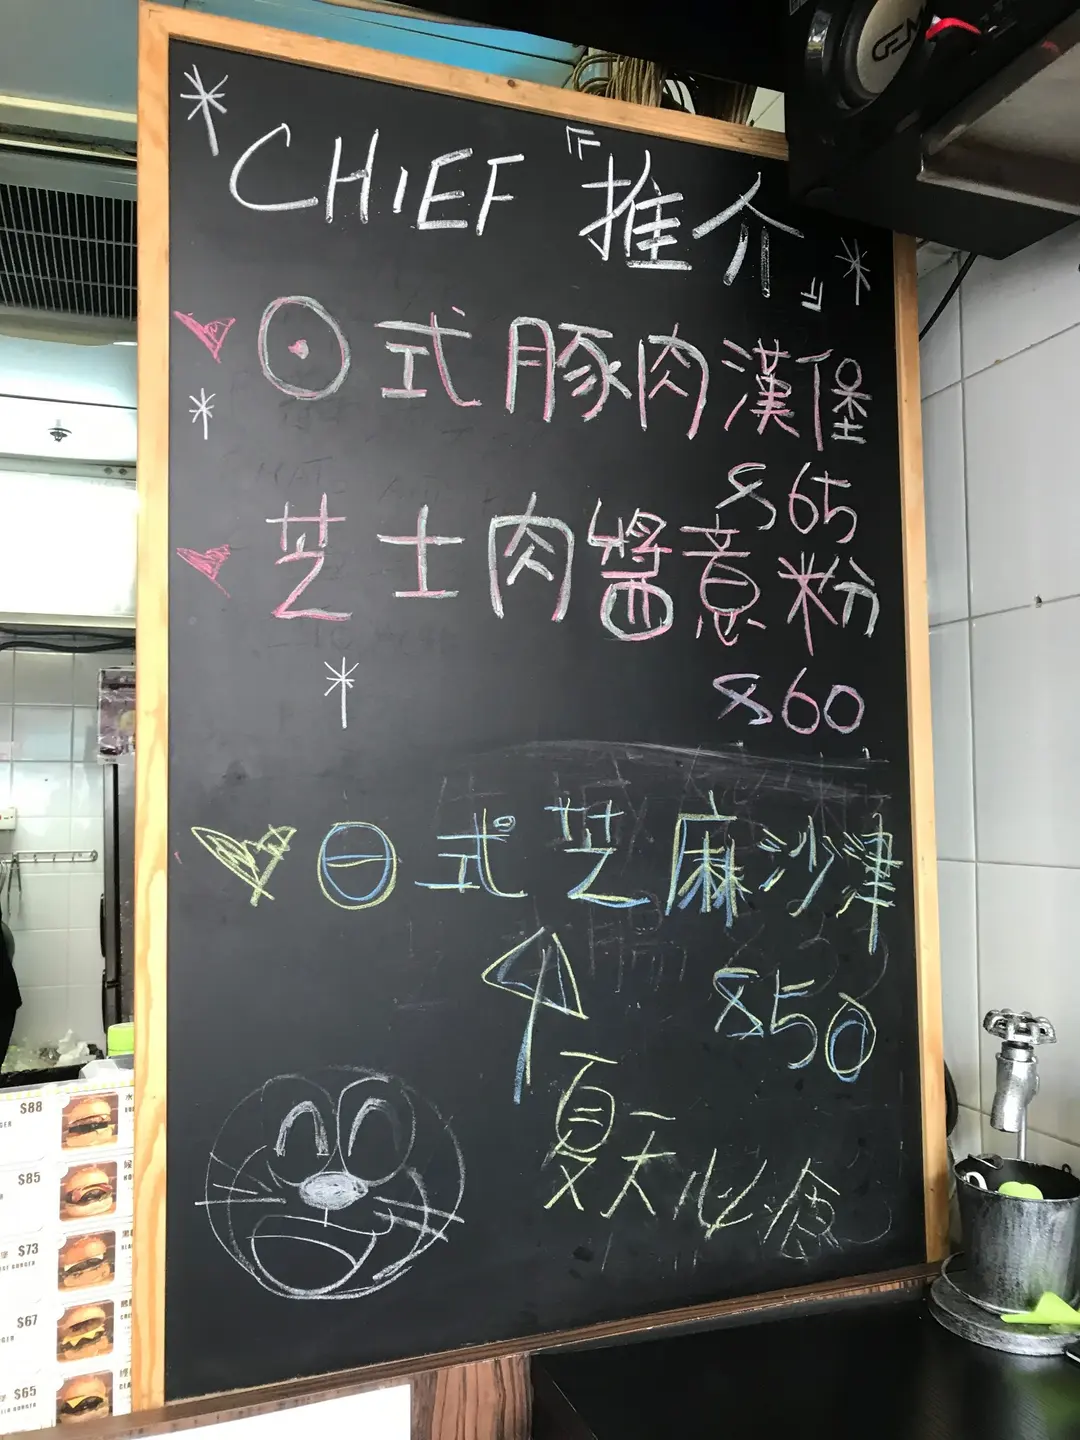 CHIEF『推介』
日式豚肉漢堡
$65
芝士肉醬意粉
$60
日式芝麻沙律
$50
夏天必食
$88
$85
$73
$67
$65